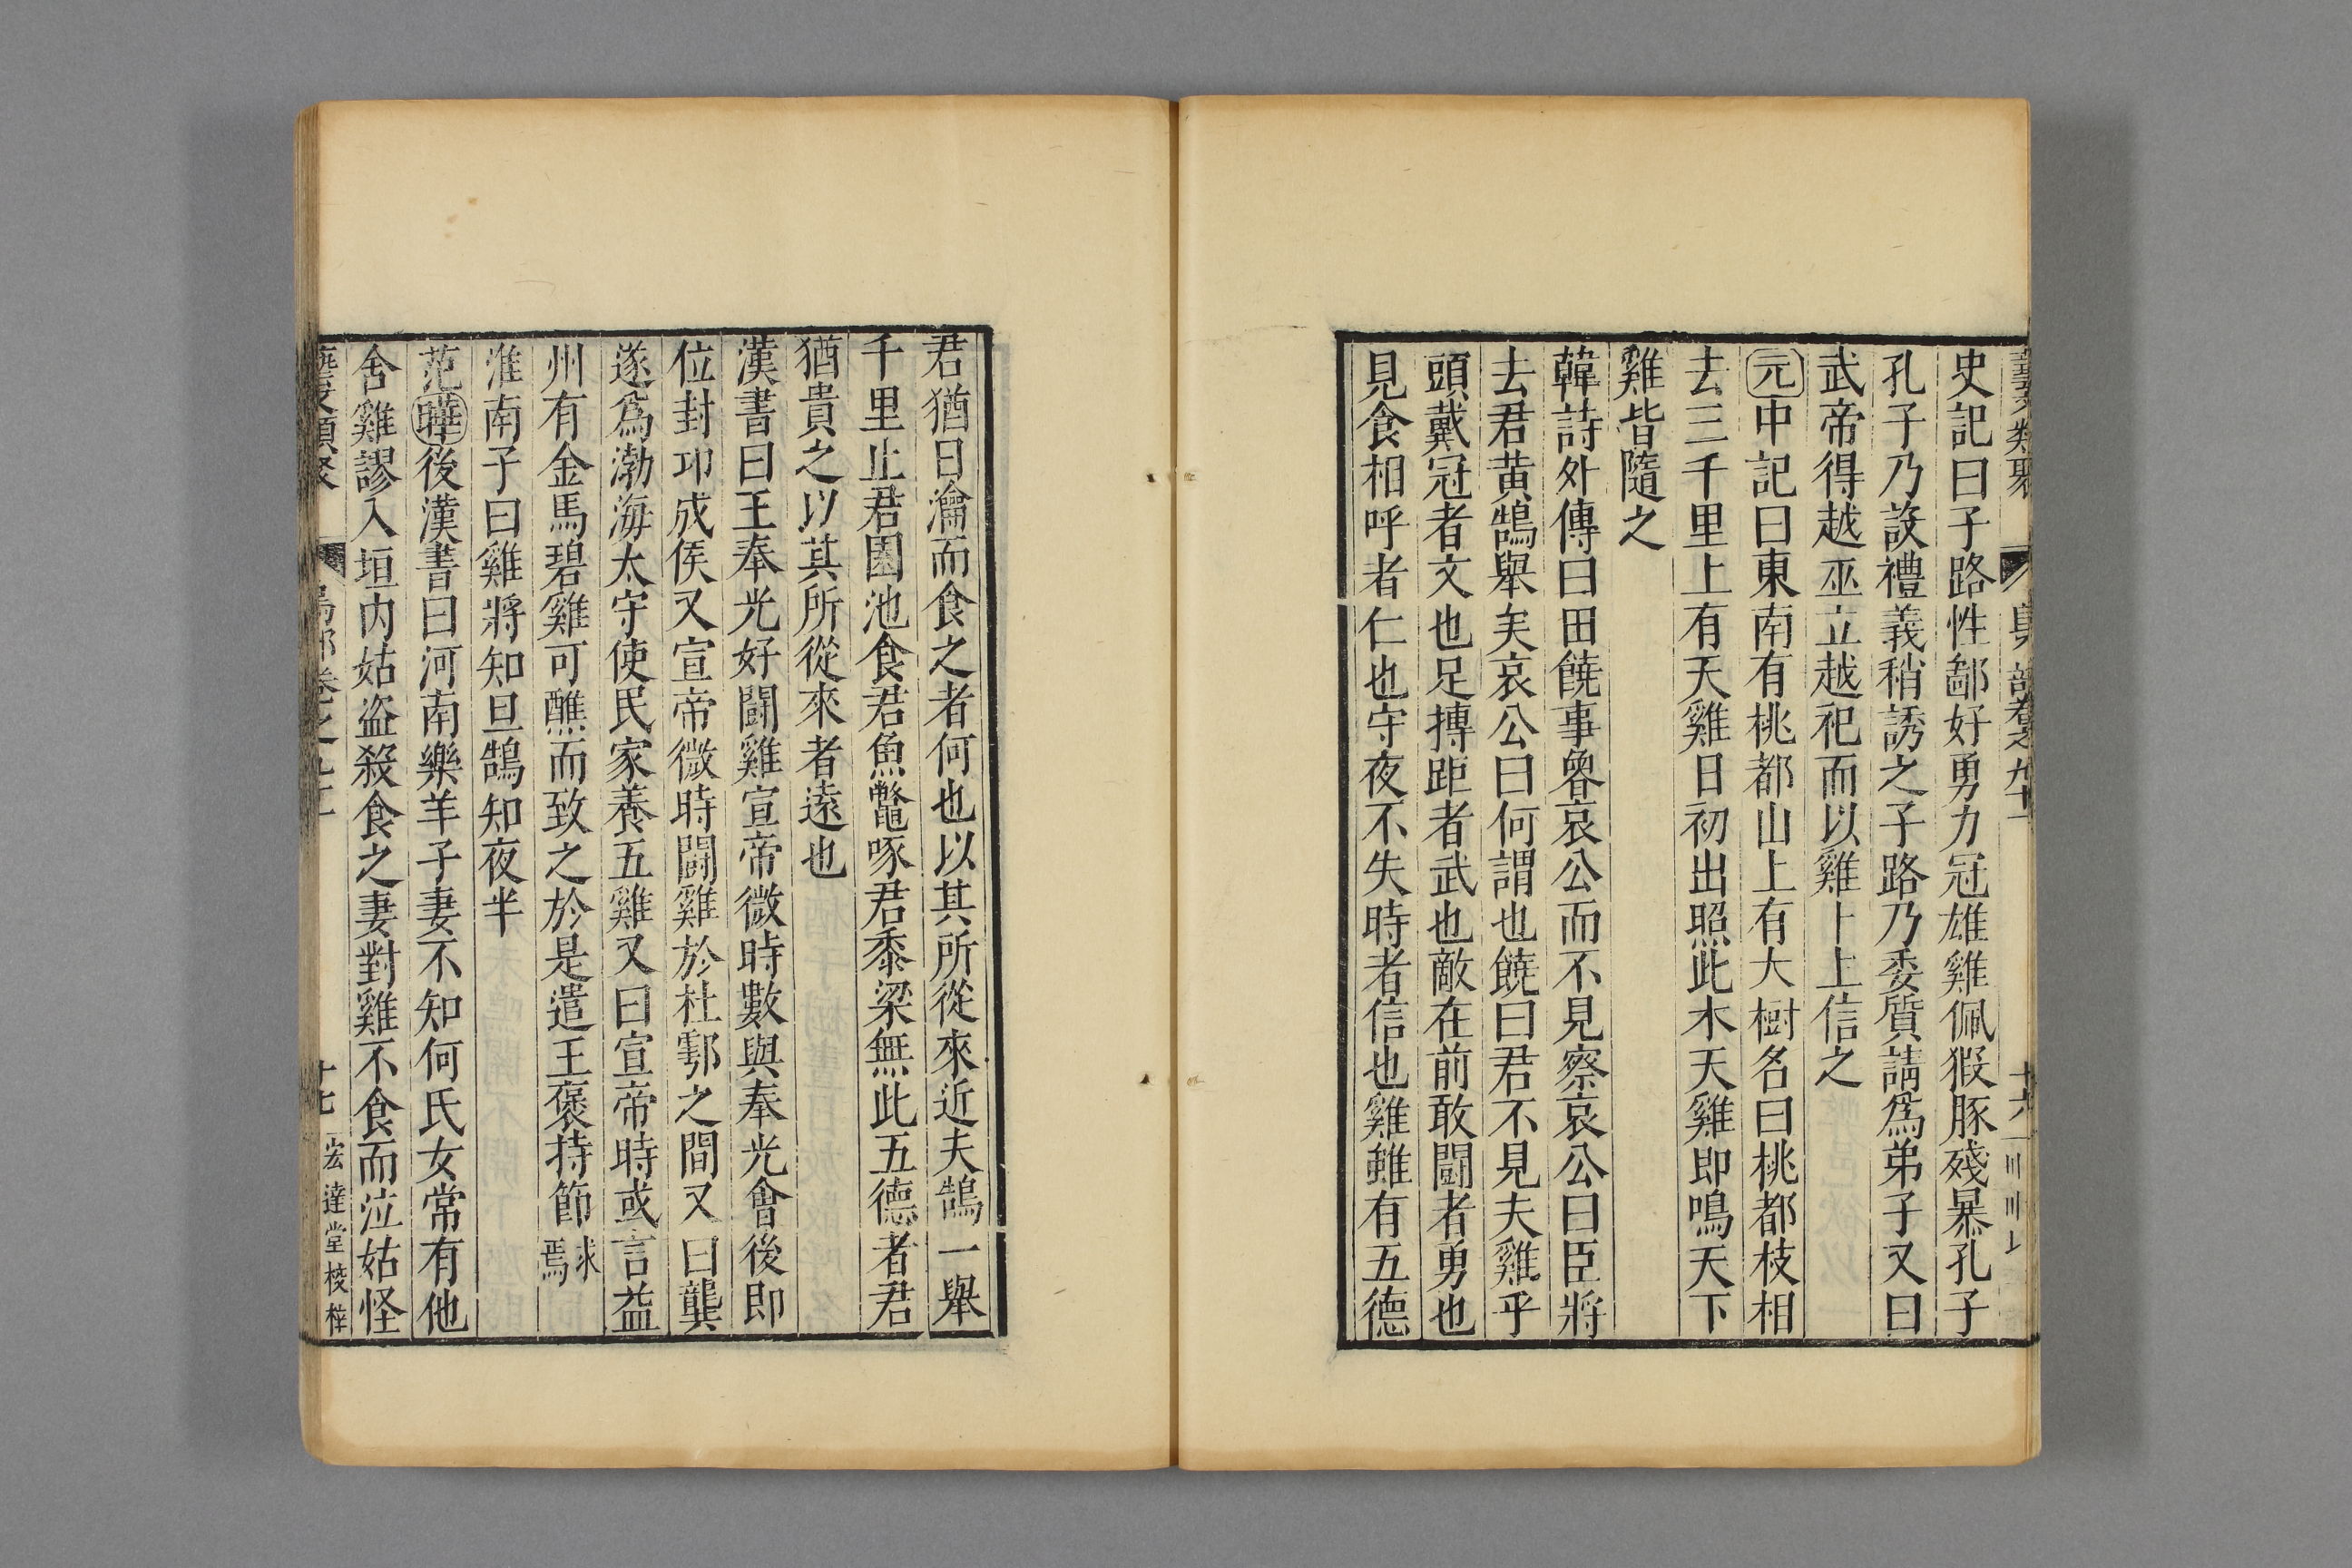 藝文類聚 鳥部卷之九十一 十六
史記曰子路性鄙好勇力冠雄雞佩猳豚殘暴孔子
孔子乃設禮義稍誘之子路乃委質請爲弟子又曰
武帝得越巫立越祀而以雞卜上信之
元中記曰東南有桃都山上有大樹名曰桃都枝相
去三千里上有天雞日初出照此木天雞即鳴天下
雞皆隨之
韓詩外傳曰田饒事魯哀公而不見察哀公曰臣將
去君黄鵠舉矣哀公曰何謂也饒曰君不見夫雞乎
頭戴冠者文也足摶距者武也敵在前敢鬭者勇也
見食相呼者仁也守夜不失時者信也雞雖有五德
君猶日瀹而食之者何也以其所從來近夫鵠一舉
千里止君園池食君魚鼈啄君黍梁無此五德者君
猶貴之以其所從來者遠也
漢書曰王奉光好鬭雞宣帝微時數與奉光會後即
位封邛成侯又宣帝微時鬭雞於杜鄠之間又曰龔
遂爲渤海太守使民家養五雞又曰宣帝時或言益
州有金馬碧雞可醮而致之於是遣王褒持節求焉
淮南子曰雞將知旦鵠知夜半
范曄後漢書曰河南樂羊子妻不知何氏女常有他
舍雞謬入垣内姑盗殺食之妻對雞不食而泣姑怪
藝文類聚 鳥部卷之九十一 十七 宏達堂校梓